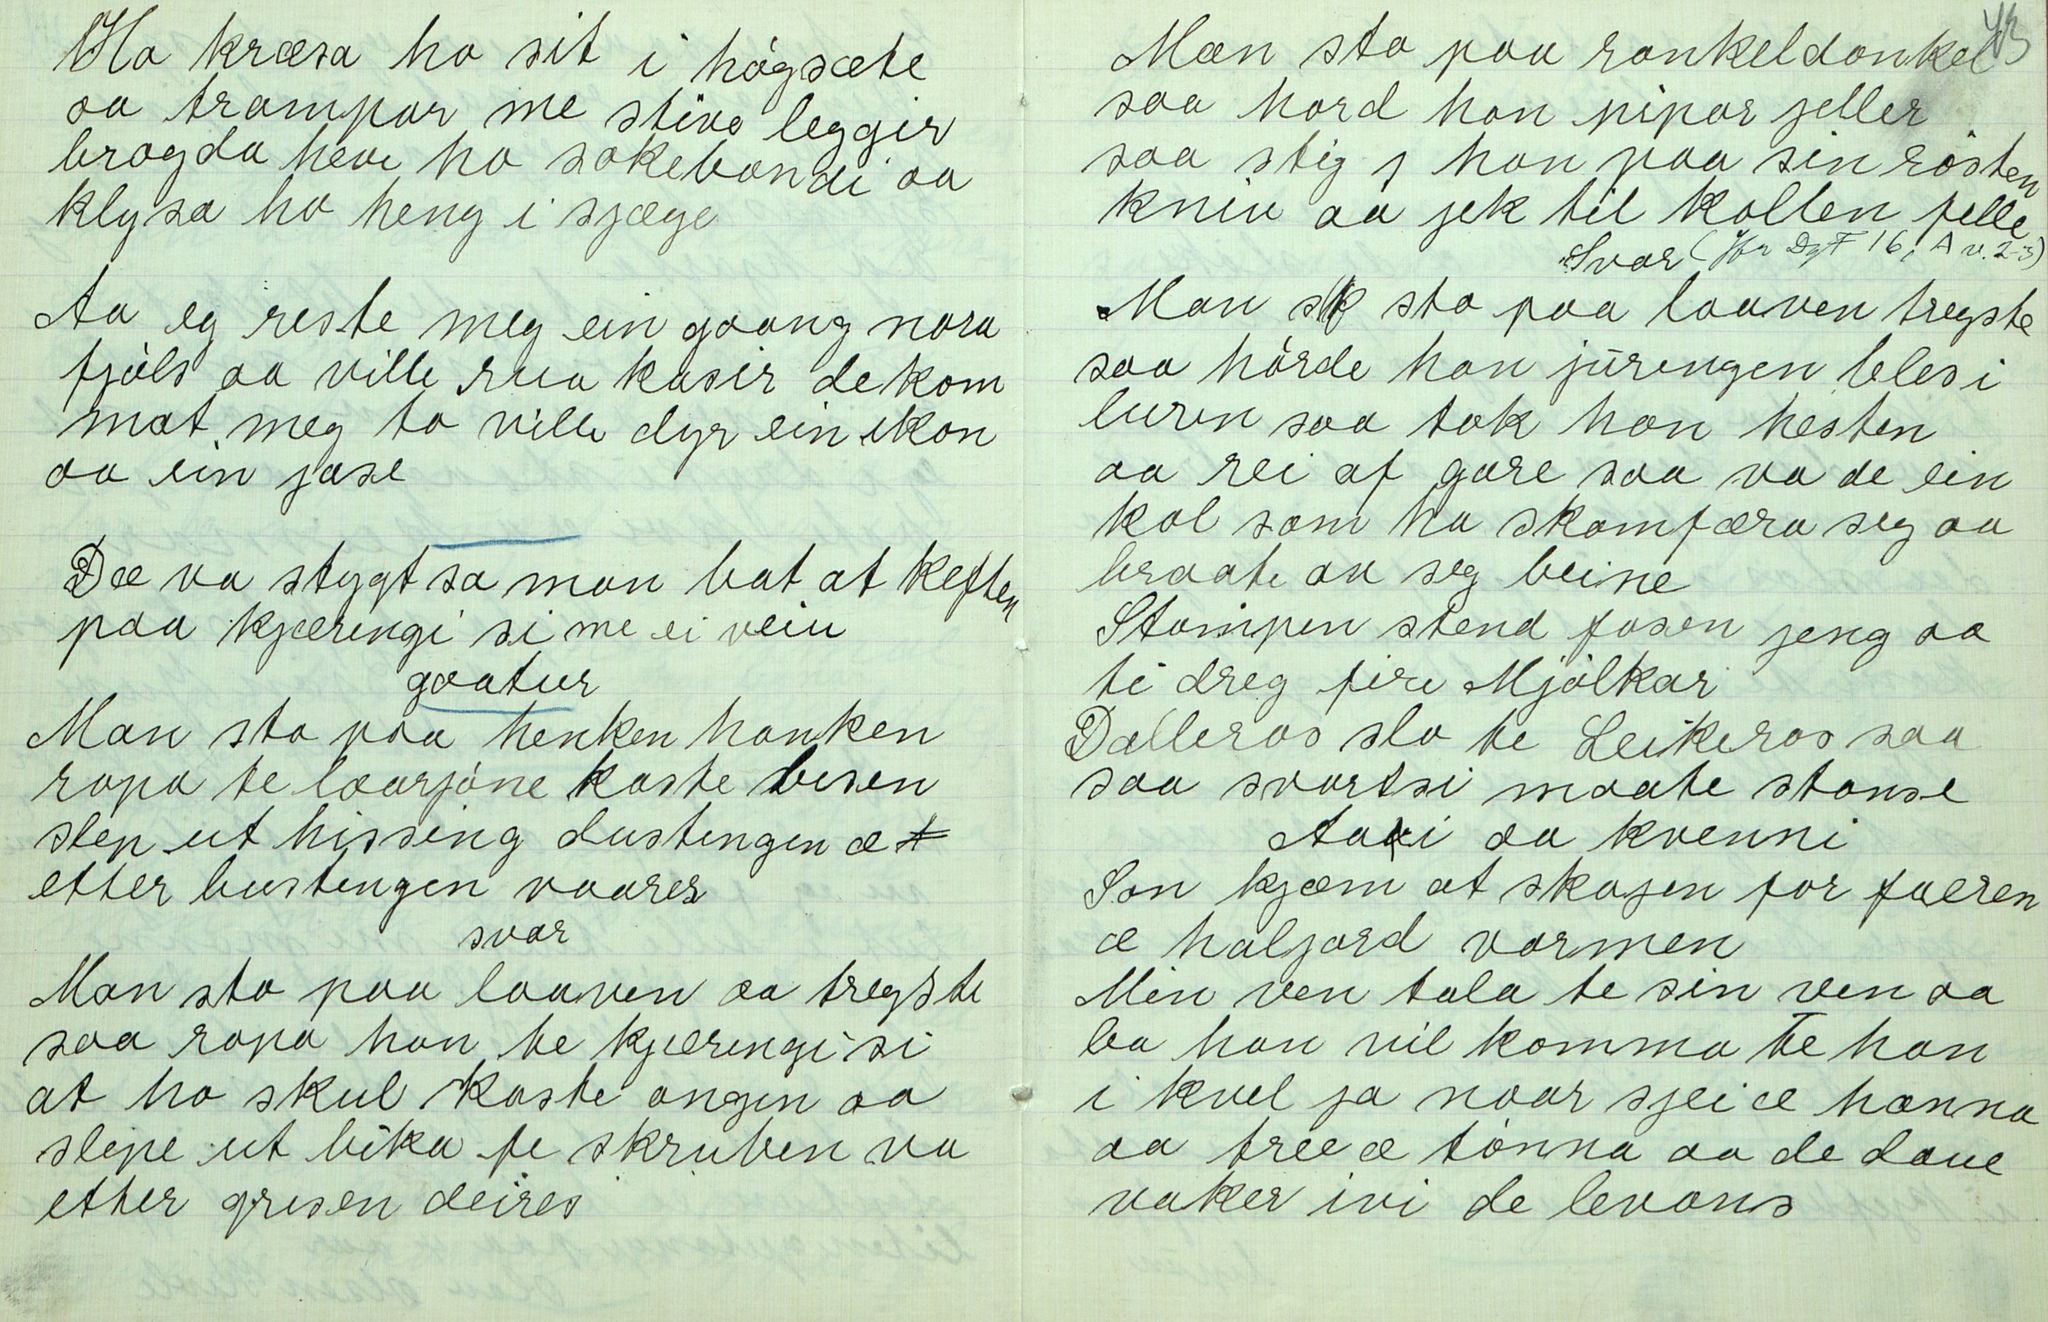 Ho kræsa ho sit i högsæte
aa trampar me stive leggir
brogda heve ho sokebondi aa
klysa ho heng i sjæge
Aa eg reste meg ein goong nora
fjöls aa ville rua kasir de kom
mot meg to ville dyr ein ikon
aa ein jase
Dæ va stygt sa mon bat at keften
paa kjæringi si me ei veiu
goatur
Mon sto paa henken honken
ropa te laarjöne kaste bisen
slep ut hissing dustingen æ
etter bustingen voorer
svar
Mon sto paa laaven aa treyste
saa ropa hon te kjæringi si
at ho skul kaste ongen aa
slepe ut bika te skruben va
etter grisen deires
43
Mæn sto paa ronkeldonkel
saa hord hon pipar jeller
saa stig hon paa sin rösten
kniv aa jek til kollen felle
Svar (Jfr DgF 16, A v. 2-3)
Mon sto paa laaven treyste
saa hörde hon jüringen bles i
luren saa tok hon hesten
aa rei af gare saa va de ein
kal som ha skomfæra seg aa
braate au seg beine
Stompen stend fosen jeng aa
ti dreg fire Mjölkar
Dælleros slo te Leikeros saa
saa svortsi maate stonse
Aaxi aa kvenni
Son kjæm at skojen for faeren
æ haljord vormen
Min ven tala te sin ven aa
ba hon vil komma te hon
i kvel ja naar sjei æ hænna
aa tree æ tönna aa de daue
vaker ivi de levons